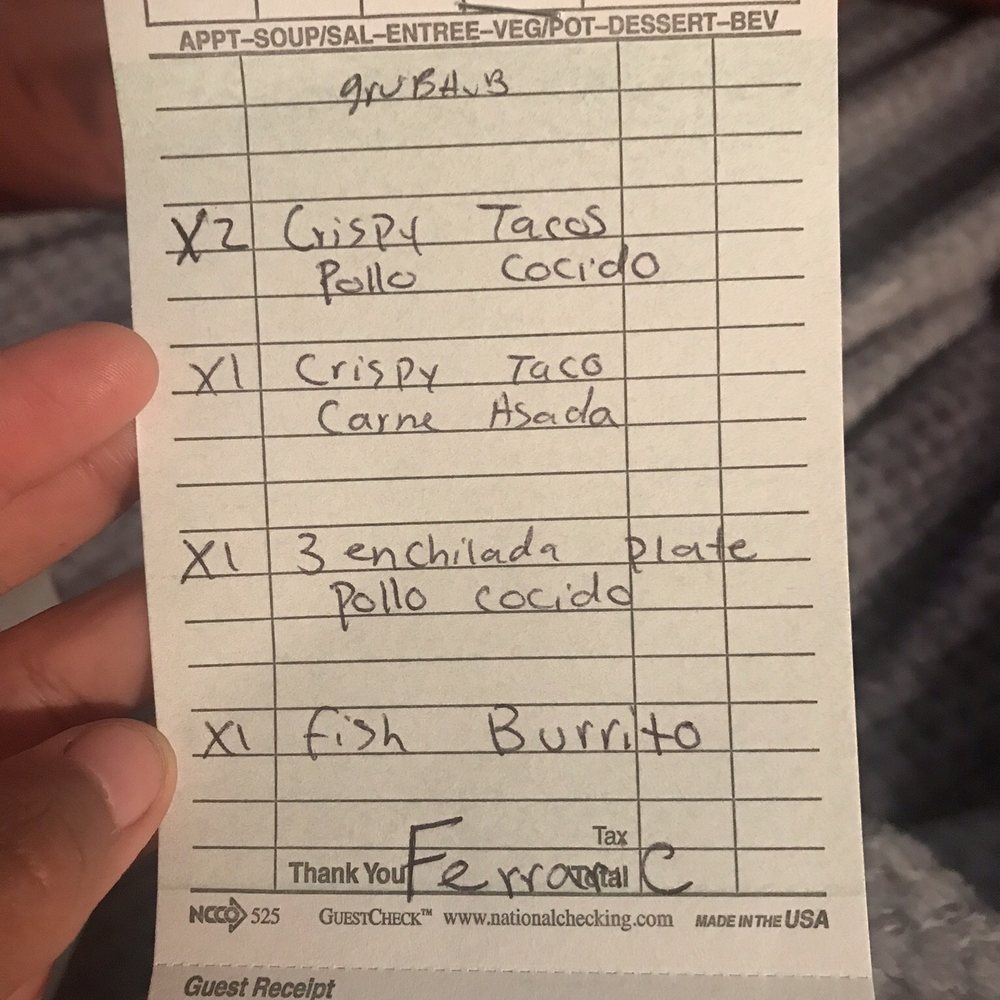 APPT–SOUP/SAL–ENTREE–VEG/POT–DESSERT–BEV
gruBHuB
X2 Crispy Tacos
Pollo Cocido
X1 Crispy Taco
Carne Asada
X1 3 enchilada plate
Pollo cocido
X1 fish Burrito
Tax
Thank You Total
C
NCCO 525 GUESTCHECK™ www.nationalchecking.com MADE IN THE USA
Guest Receipt